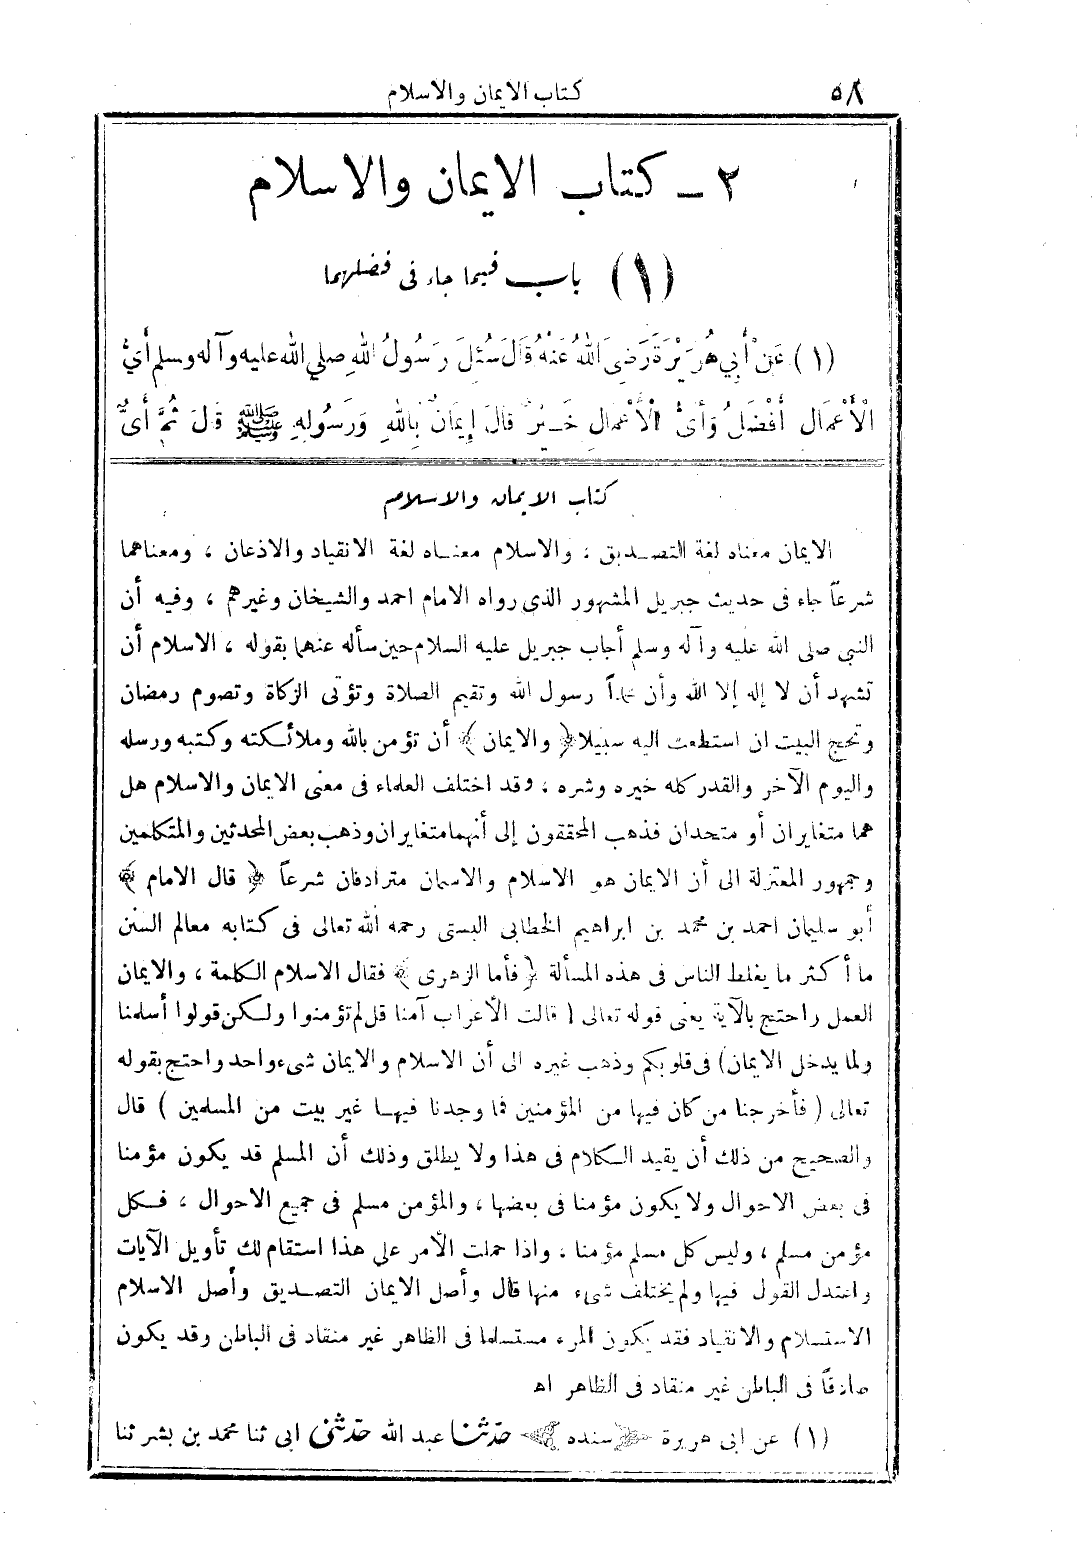 ٥٨
كتاب الايمان والاسلام
٢ ـ كتاب الايمان والاسلام
(١) باب فيما جاء فى فضلهما
(١) عَنْ أَبِي هُرَيْرَةَ رَضِىَ اللهُ عَنْهُ قَالَ سُئِلَ رَسُولُ اللهِ صلي الله عليه وآله وسلم أَىُّ
الْأَعْمَالِ أَفْضَلُ وَأَىُّ الْأَعْمَالِ خَيْرٌ قَالَ إِيمَانٌ بِاللهِ وَرَسُولِهِ ﷺ قَالَ ثُمَّ أَىٌّ
كتاب الايمان والاسلام
الايمان معناه لغة التصديق ، والاسلام معناه لغة الانقياد والاذعان ، ومعناهما
شرعاً جاء فى حديث جبريل المشهور الذى رواه الامام احمد والشيخان وغيرهم ، وفيه أن
النبى صلى الله عليه وآله وسلم أجاب جبريل عليه السلام حين سأله عنهما بقوله ، الاسلام أن
تشهد أن لا إله إلا الله وأن محمداً رسول الله وتقيم الصلاة وتؤتى الزكاة وتصوم رمضان
وتحج البيت ان استطعت اليه سبيلا ﴿ والايمان ﴾ أن تؤمن بالله وملائكته وكتبه ورسله
واليوم الآخر والقدر كله خيره وشره ، وقد اختلف العلماء فى معنى الايمان والاسلام هل
هما متغايران أو متحدان فذهب المحققون إلى أنهما متغايران وذهب بعض المحدثين والمتكلمين
وجمهور المعتزلة الى أن الايمان هو الاسلام والاسمان مترادفان شرعاً ﴿ قال الامام ﴾
أبو سليمان احمد بن محمد بن ابراهيم الخطابى البستى رحمه الله تعالى فى كتابه معالم السنن
ما أكثر ما يغلط الناس فى هذه المسألة ﴿ فأما الزهرى ﴾ فقال الاسلام الكلمة ، والايمان
العمل واحتج بالآية يعنى قوله تعالى ( قالت الأعراب آمنا قل لم تؤمنوا ولكن قولوا أسلمنا
ولما يدخل الايمان) فى قلوبكم وذهب غيره الى أن الاسلام والايمان شىء واحد واحتج بقوله
تعالى ( فأخرجنا من كان فيها من المؤمنين فما وجدنا فيها غير بيت من المسلمين ) قال
والصحيح من ذلك أن يقيد الكلام فى هذا ولا يطلق وذلك أن المسلم قد يكون مؤمنا
فى بعض الاحوال ولا يكون مؤمنا فى بعضها ، والمؤمن مسلم فى جميع الاحوال ، فكل
مؤمن مسلم ، وليس كل مسلم مؤمنا ، واذا حملت الأمر على هذا استقام لك تأويل الآيات
واعتدل القول فيها ولم يختلف شىء منها قال وأصل الايمان التصديق وأصل الاسلام
الاستسلام والانقياد فقد يكون المرء مستسلما فى الظاهر غير منقاد فى الباطن وقد يكون
صادقاً فى الباطن غير منقاد فى الظاهر اه
(١) عن ابى هريرة ﴿سنده﴾ حدثنا عبد الله حدثنى ابى ثنا محمد بن بشر ثنا